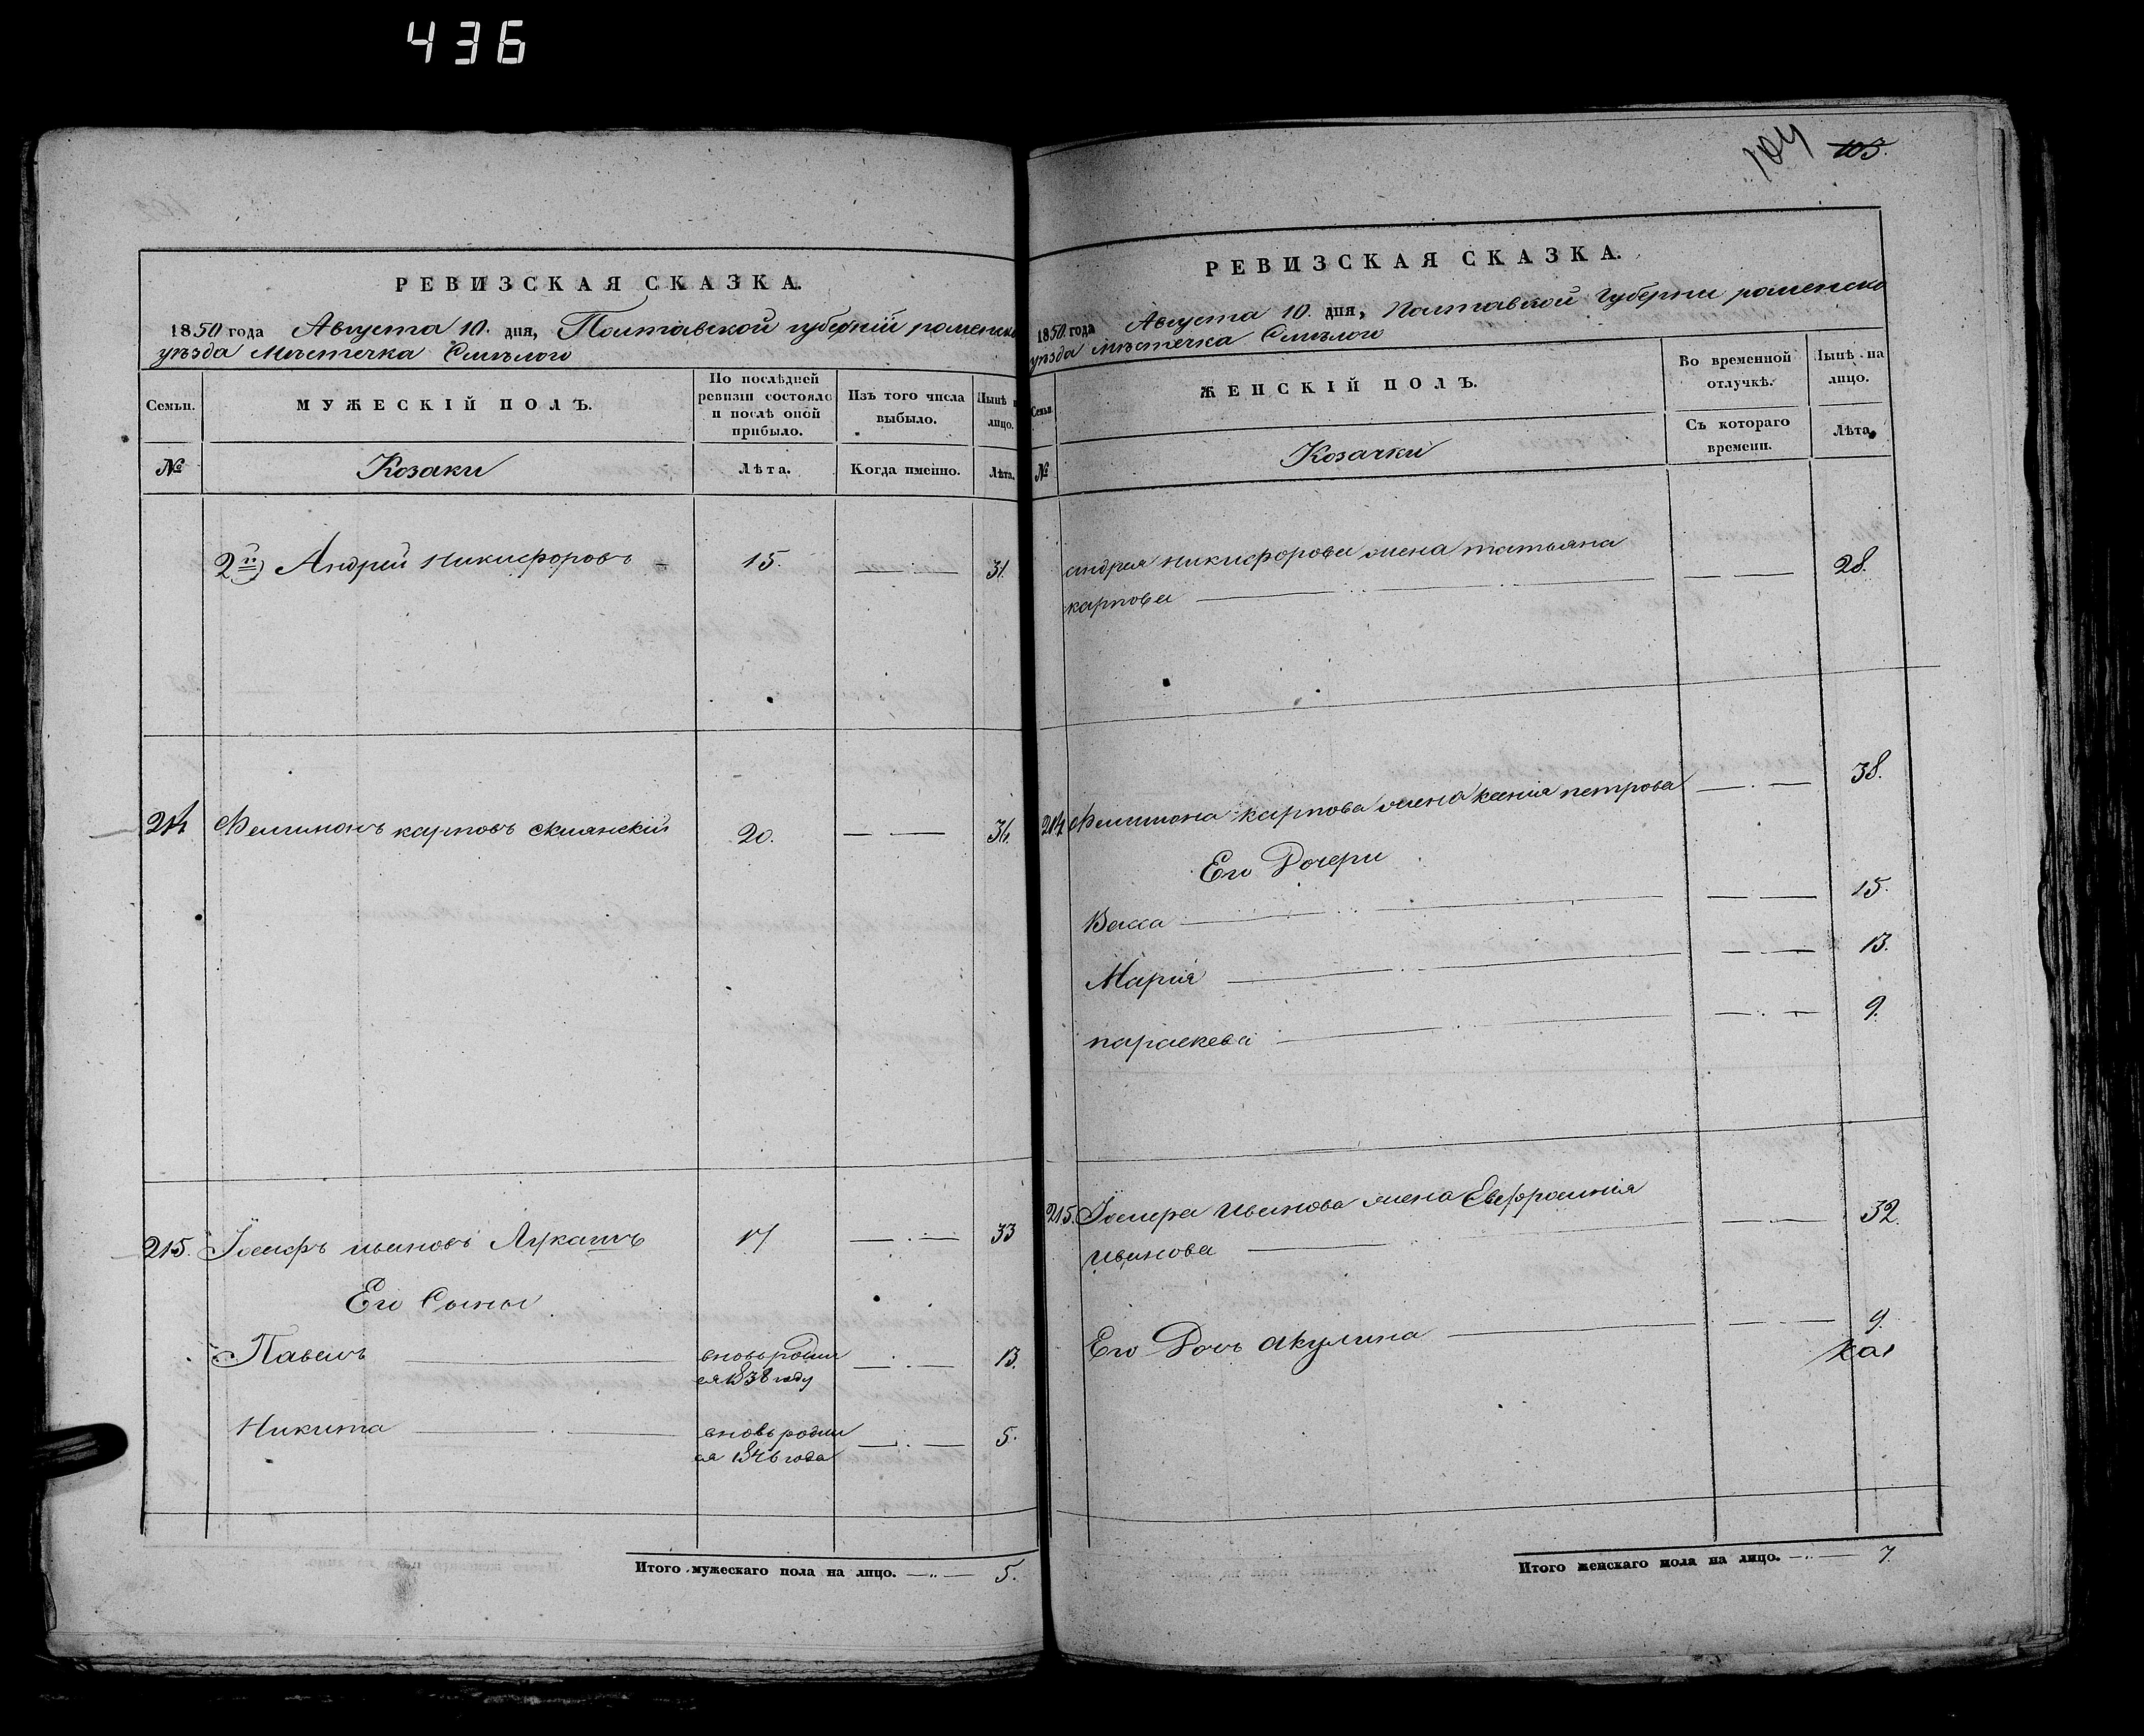 436
РЕВИЗСКАЯ СКАЗКА.
1850 года Августа 10. дня, Полтавской губерній роменско
уѣзда Мѣстечка Смѣлого
Семьи.
МУЖЕСКІЙ ПОЛЪ.
По послѣдней
ревизіи состояло
и послѣ оной
прибыло.
Изъ того числа
выбыло.
Нынѣ н
лицо.
№
Козаки
Лѣта.
Когда именно.
Лѣта.
2й) Андрей Никифоровъ 15. 31.
214 Филимонъ карповъ 20. 36.
215. Іосифъ ивановъ Лукашъ 17 33
Его Сыны
Павелъ вновь роди 13.
ся 1838 году
Никита вновь роди 5.
ся 1846 года
Итого мужескаго пола на лицо. 5.
104 103.
РЕВИЗСКАЯ СКАЗКА.
1850 года Августа 10. дня, Полтавской Губерни роменско
уѣзда мѣстечка Смѣлого
Семьи
ЖЕНСКІЙ ПОЛЪ.
Во временной
отлучкѣ.
Нынѣ на
лицо.
Съ котораго
времени.
Лѣта.
№
Козачки
андрея никифорова жена татьяна 28.
карпова
214 Филимона карпова жена ксенія петрова 38.
Его Дочери
Васса 15.
Марія 13.
параскева 9.
215. Іосифа иванова жена Евфросинія 32.
иванова
Его Дочь акулина 9.
Итого женскаго пола на лицо. 7.